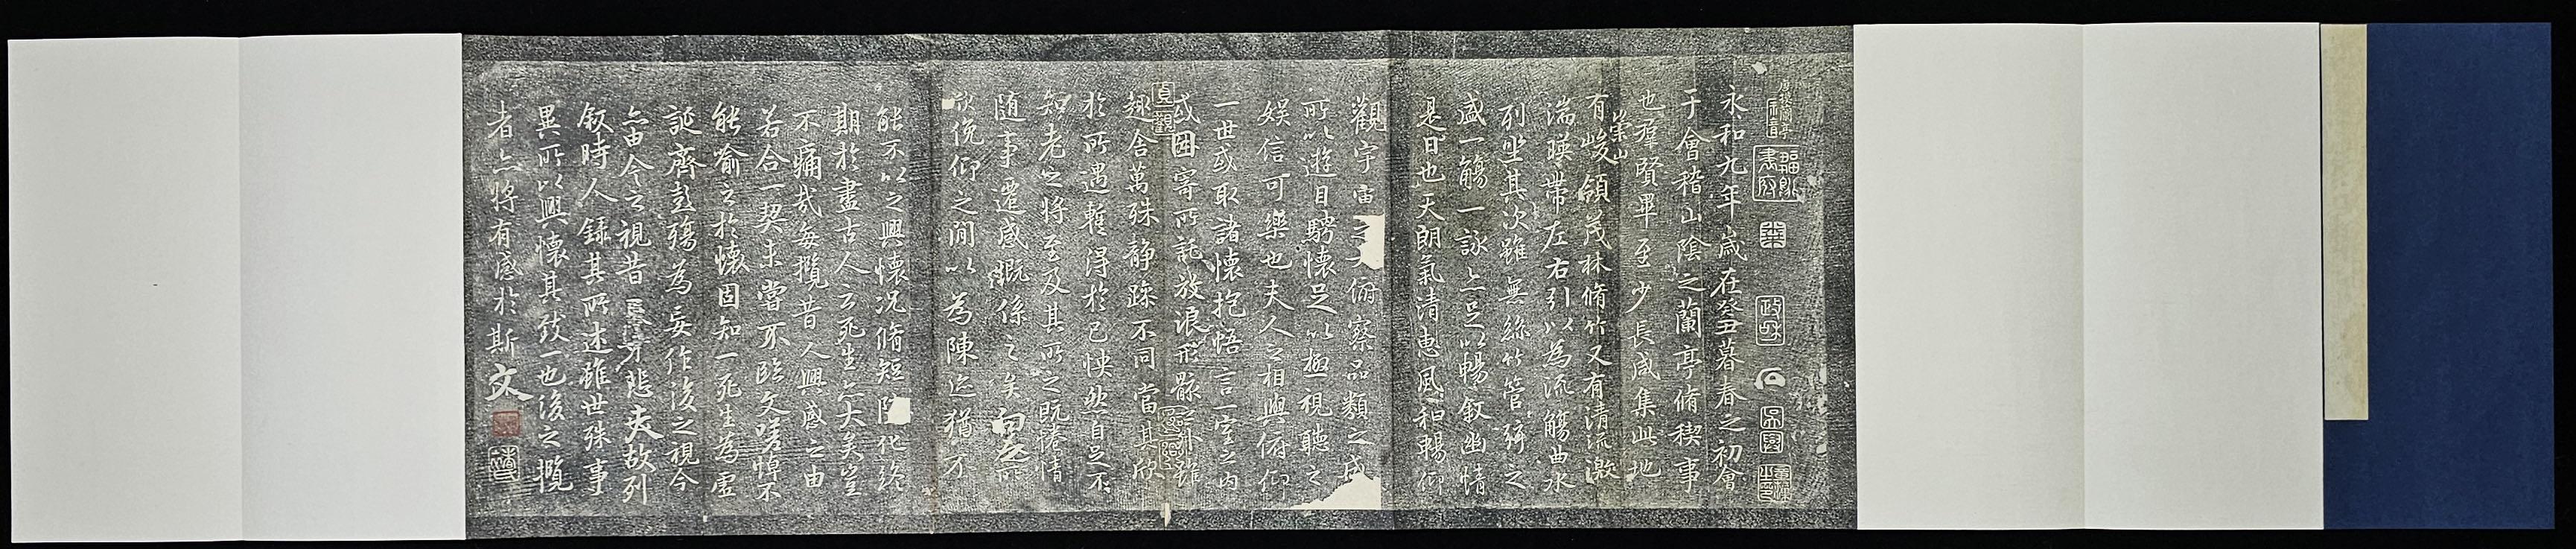 政和
永和九年歲在癸丑暮春之初會
于會稽山陰之蘭亭脩稧事
也羣賢畢至少長咸集此地
有崇山峻領茂林脩竹又有清流激
湍暎帶左右引以為流觴曲水
列坐其次雖無絲竹管弦之
盛一觴一詠亦足以暢敘幽情
是日也天朗氣清惠風和暢仰
觀宇宙大俯察品類之盛
所以遊目騁懷足以極視聽之
娛信可樂也夫人之相與俯仰
一世或取諸懷抱悟言一室之內
或因寄所託放浪形骸之外雖
貞觀
趣舍萬殊靜躁不同當其欣
於所遇蹔得於己怏然自足不
知老之將至及其所之既惓情
隨事遷感慨係之矣向之所
欣俛仰之閒以為陳迹猶不
能不以之興懷況脩短化終
期於盡古人云死生亦大矣豈
不痛哉每攬昔人興感之由
若合一契未嘗不臨文嗟悼不
能喻之於懷固知一死生為虛
誕齊彭殤為妄作後之視今
亦由今之視昔悲夫故列
敘時人錄其所述雖世殊事
異所以興懷其致一也後之攬
者亦將有感於斯文